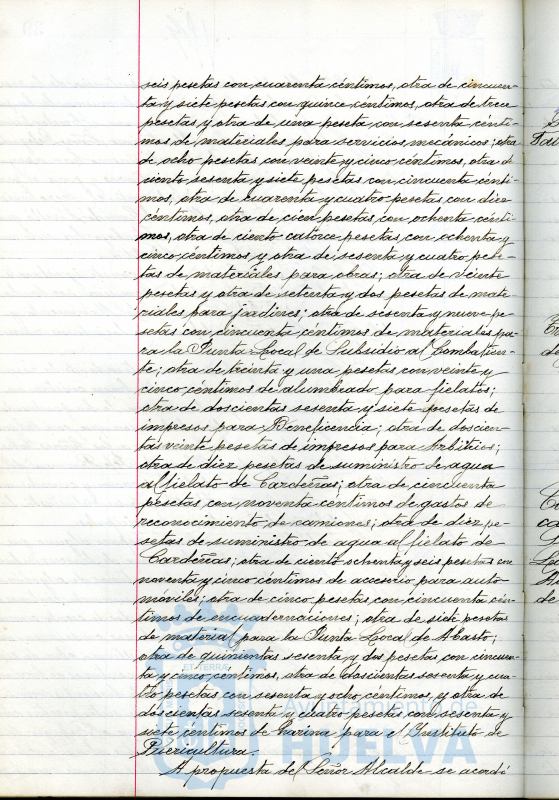 seis pesetas con cuarenta céntimos, otra de cincuen-
ta y siete pesetas con quince céntimos, otra de trece
pesetas y otra de una peseta con sesenta cénti-
mos de materiales para servicios mecánicos; otra
de ocho pesetas con veinte y cinco céntimos, otra de
ciento sesenta y siete pesetas con cincuenta cénti-
mos, otra de cuarenta y cuatro pesetas con diez
céntimos, otra de cien pesetas con ochenta cénti-
mos, otra de ciento catorce pesetas con ochenta y
cinco céntimos y otra de sesenta y cuatro pese-
tas de materiales para obras; otra de veinte
pesetas y otra de setenta y dos pesetas de mate-
riales para jardines; otra de sesenta y nueve pe-
setas con cincuenta céntimos de materiales pa-
ra la Junta Local de Subsidio al Combatien-
te; otra de treinta y una pesetas con veinte y
cinco céntimos de alumbrado para fielatos;
otra de doscientas sesenta y siete pesetas de
impresos para Beneficencia; otra de doscien-
tas veinte pesetas de impresos para Arbitrios;
otra de diez pesetas de suministro de agua
al fielato de Cardeñas; otra de cincuenta
pesetas con noventa céntimos de gastos de
reconocimiento de camiones; otra de diez pe-
setas de suministro de agua al fielato de
Cardeñas; otra de ciento ochenta y seis pesetas con
noventa y cinco céntimos de accesorio para auto
móviles; otra de cinco pesetas con cincuenta cén-
timos de encuadernaciones; otra de siete pesetas
de material para la Junta Local de Abasto;
otra de quinientas sesenta y dos pesetas con cincuen-
ta y cinco céntimos, otra de doscientas sesenta y cua-
tro pesetas con sesenta y ocho céntimos y otra de
doscientas sesenta y cuatro pesetas con sesenta y
siete céntimos de harina para el Instituto de
Puericultura.
A propuesta del Señor Alcalde se acordó
ET TERRA
Ayuntamiento de
HUELVA